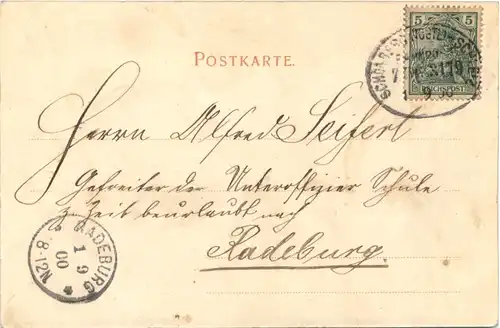 POSTKARTE.
5 5
REICHSPOST
Herrn Alfred Seiferl
Gefreiter der Unteroffizier Schule
z. Zeit beurlaubt nach
Radeburg.
RADEBURG
1 9
00
8-12N